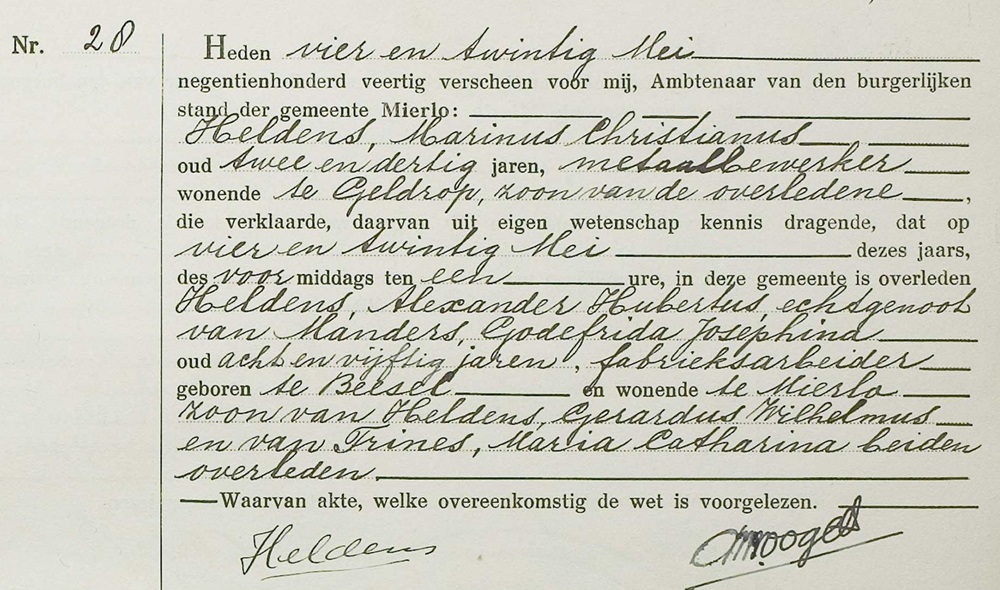 Nr. 28
Heden vier en twintig Mei
negentienhonderd veertig verscheen voor mij, Ambtenaar van den burgerlijken
stand der gemeente Mierlo:
Heldens, Marinus Christianus
oud twee en dertig jaren, metaalbewerker
wonende te Geldrop, zoon van de overledene,
die verklaarde, daarvan uit eigen wetenschap kennis dragende, dat op
vier en twintig Mei dezes jaars,
des voor middags ten een ure, in deze gemeente is overleden
Heldens, Alexander Hubertus, echtgenoot
van Manders, Godefrida Josephina
oud acht en vijftig jaren, fabrieksarbeider
geboren te Beesel en wonende te Mierlo
zoon van Heldens, Gerardus Wilhelmus
en van Trines, Maria Catharina beiden
overleden
Waarvan akte, welke overeenkomstig de wet is voorgelezen.
Heldens